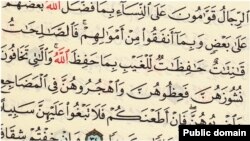 الرِّجَالُ قَوَّٰمُونَ عَلَى ٱلنِّسَآءِ بِمَا فَضَّلَ ٱللَّهُ بَعْضَهُمْ
عَلَىٰ بَعْضٍ وَبِمَآ أَنفَقُوا۟ مِنْ أَمْوَٰلِهِمْ فَٱلصَّٰلِحَٰتُ
قَٰنِتَٰتٌ حَٰفِظَٰتٌ لِّلْغَيْبِ بِمَا حَفِظَ ٱللَّهُ وَٱلَّٰتِى تَخَافُونَ
نُشُوزَهُنَّ فَعِظُوهُنَّ وَٱهْجُرُوهُنَّ فِى ٱلْمَضَاجِعِ
فَإِنْ أَطَعْنَكُمْ فَلَا تَبْغُوا۟ عَلَيْهِنَّ سَبِيلًا
خِفْتُمْ شِقَاقَ
Public domain